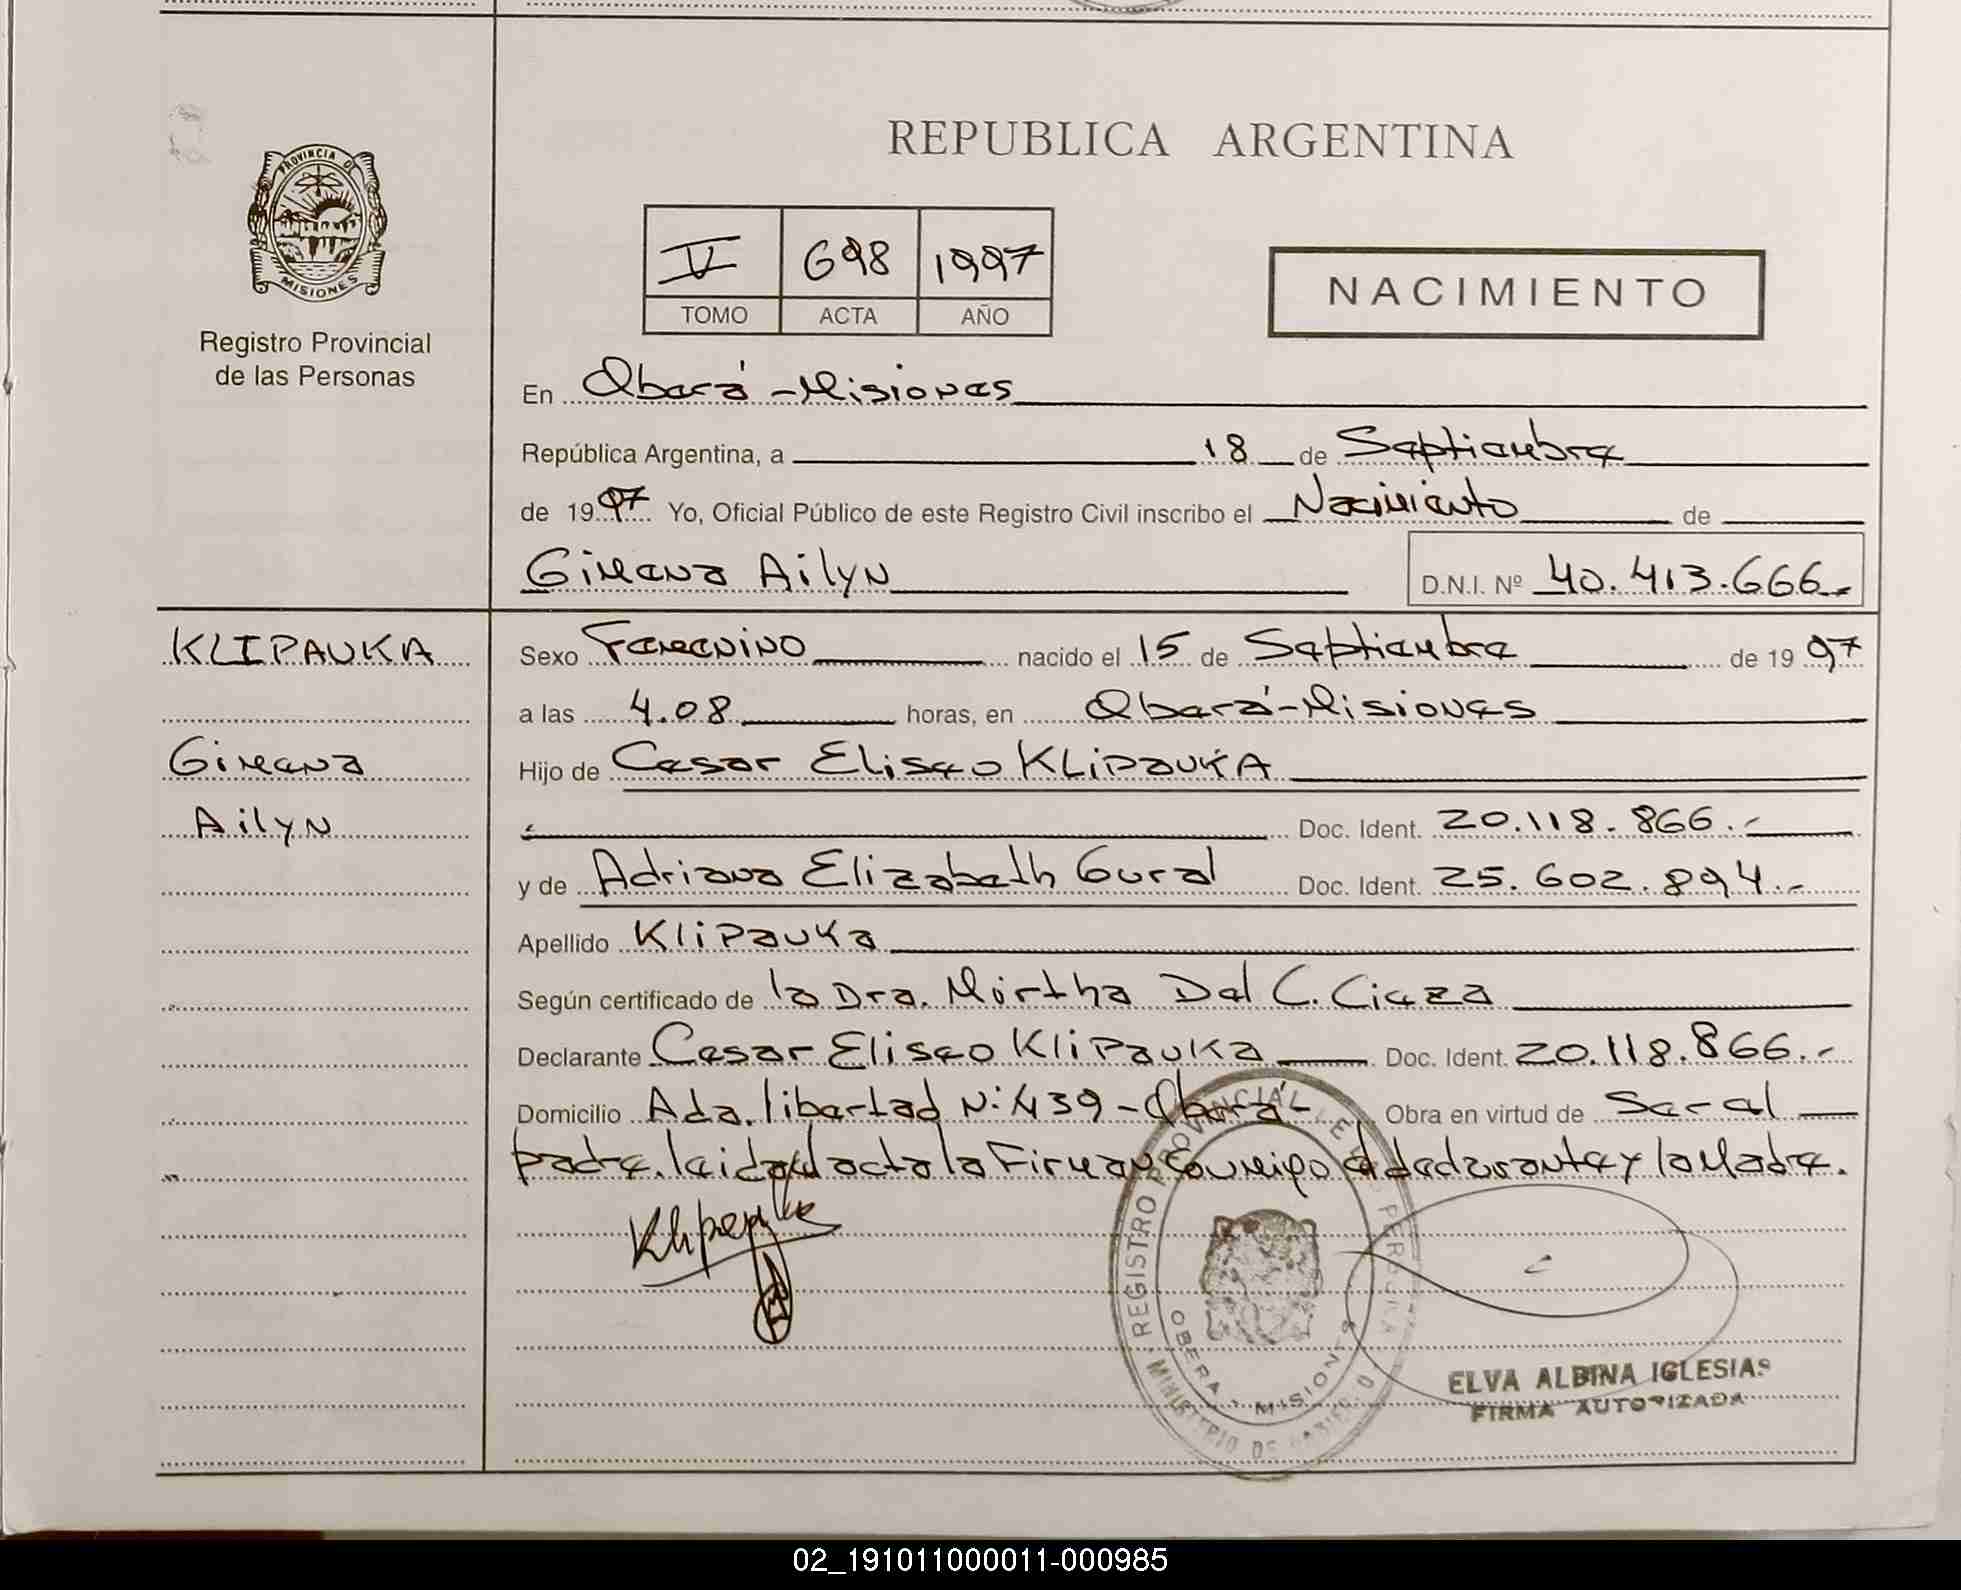 REPUBLICA ARGENTINA
PROVINCIA DE
MISIONES
Registro Provincial
de las Personas
V 698 1997
TOMO ACTA AÑO
NACIMIENTO
En Oberá - Misiones
República Argentina, a 18 de Septiembre
de 1997 Yo, Oficial Público de este Registro Civil inscribo el Nacimiento de
Gimena Ailyn D.N.I. Nº 40.413.666.-
KLIPAUKA
Gimena
Ailyn
Sexo Femenino nacido el 15 de Septiembre de 1997
a las 4.08 horas, en Oberá - Misiones
Hijo de Cesar Eliseo KLIPAUKA
Doc. Ident. 20.118.866.-
y de Adriana Elizabeth Gural Doc. Ident. 25.602.894.-
Apellido Klipauka
Según certificado de la Dra. Mirtha Del C. Cieza
Declarante Cesar Eliseo Klipauka Doc. Ident. 20.118.866.-
Domicilio Ada. libertad N: 439 - Oberá - Obra en virtud de Ser el
padre. leida el acta la Firman conmigo el declarante y la Madre.
REGISTRO PROVINCIAL DE LAS PERSONAS
OBERA - MISIONES
MINISTERIO DE GOBIERNO
ELVA ALBINA IGLESIAS
FIRMA AUTORIZADA
02_191011000011-000985